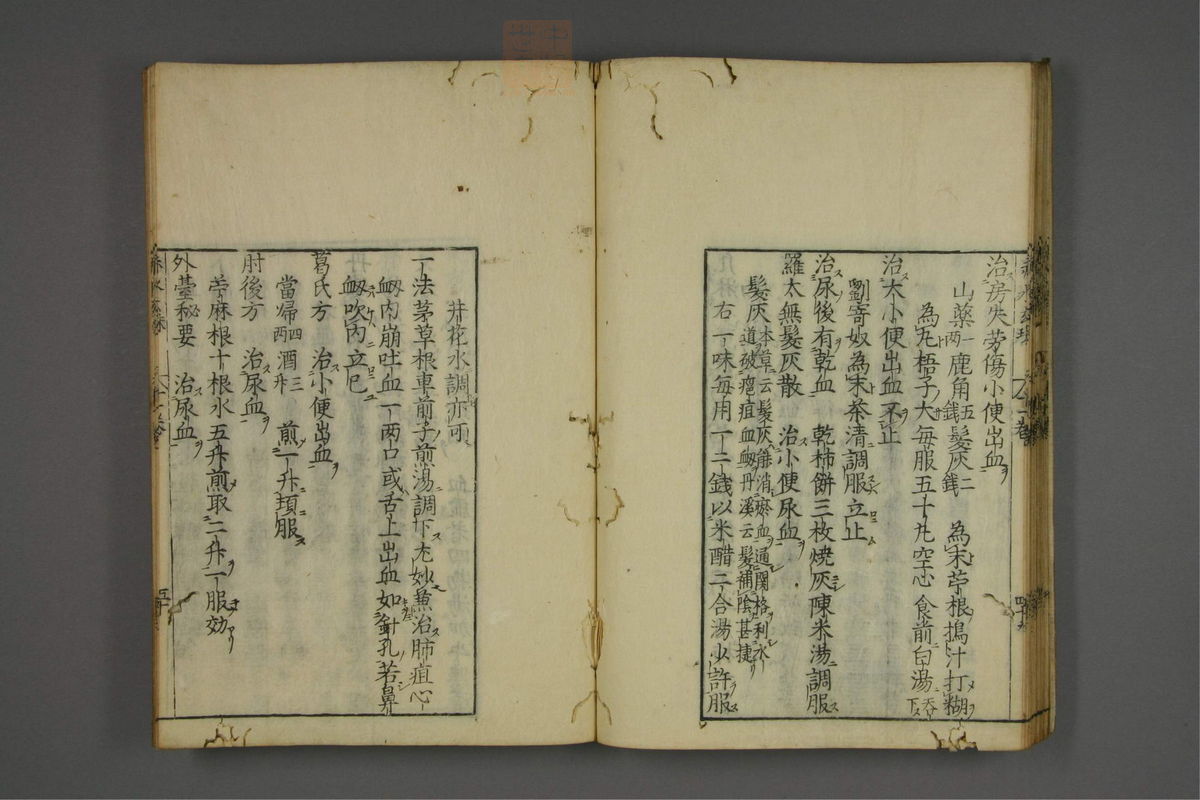 治房失労傷小便出血
山薬一両鹿角五銭髪灰二銭 為末苧根搗汁打糊
為丸梧子大毎服五十丸空心食前白湯呑下
治大小便出血不止
劉寄奴為末茶清調服立止
治尿後有乾血 乾柿餅三枚焼灰陳米湯調服
羅太無髪灰散 治小便尿血
髪灰本草云髪灰能消瘀血通関格利水
道破癥疽血衂丹溪云髪補陰甚捷
右一味毎用一二銭以米醋二合湯少許服
井花水調亦可
一法茅草根車前子煎湯調下尤妙兼治肺疽心
衂内崩吐血一両口或舌上出血如針孔若鼻
衂吹内立已
葛氏方 治小便出血
當帰四両酒三升 煎一升頓服
肘後方 治尿血
苧麻根十根水五升煎取二升一服効
外臺秘要 治尿血